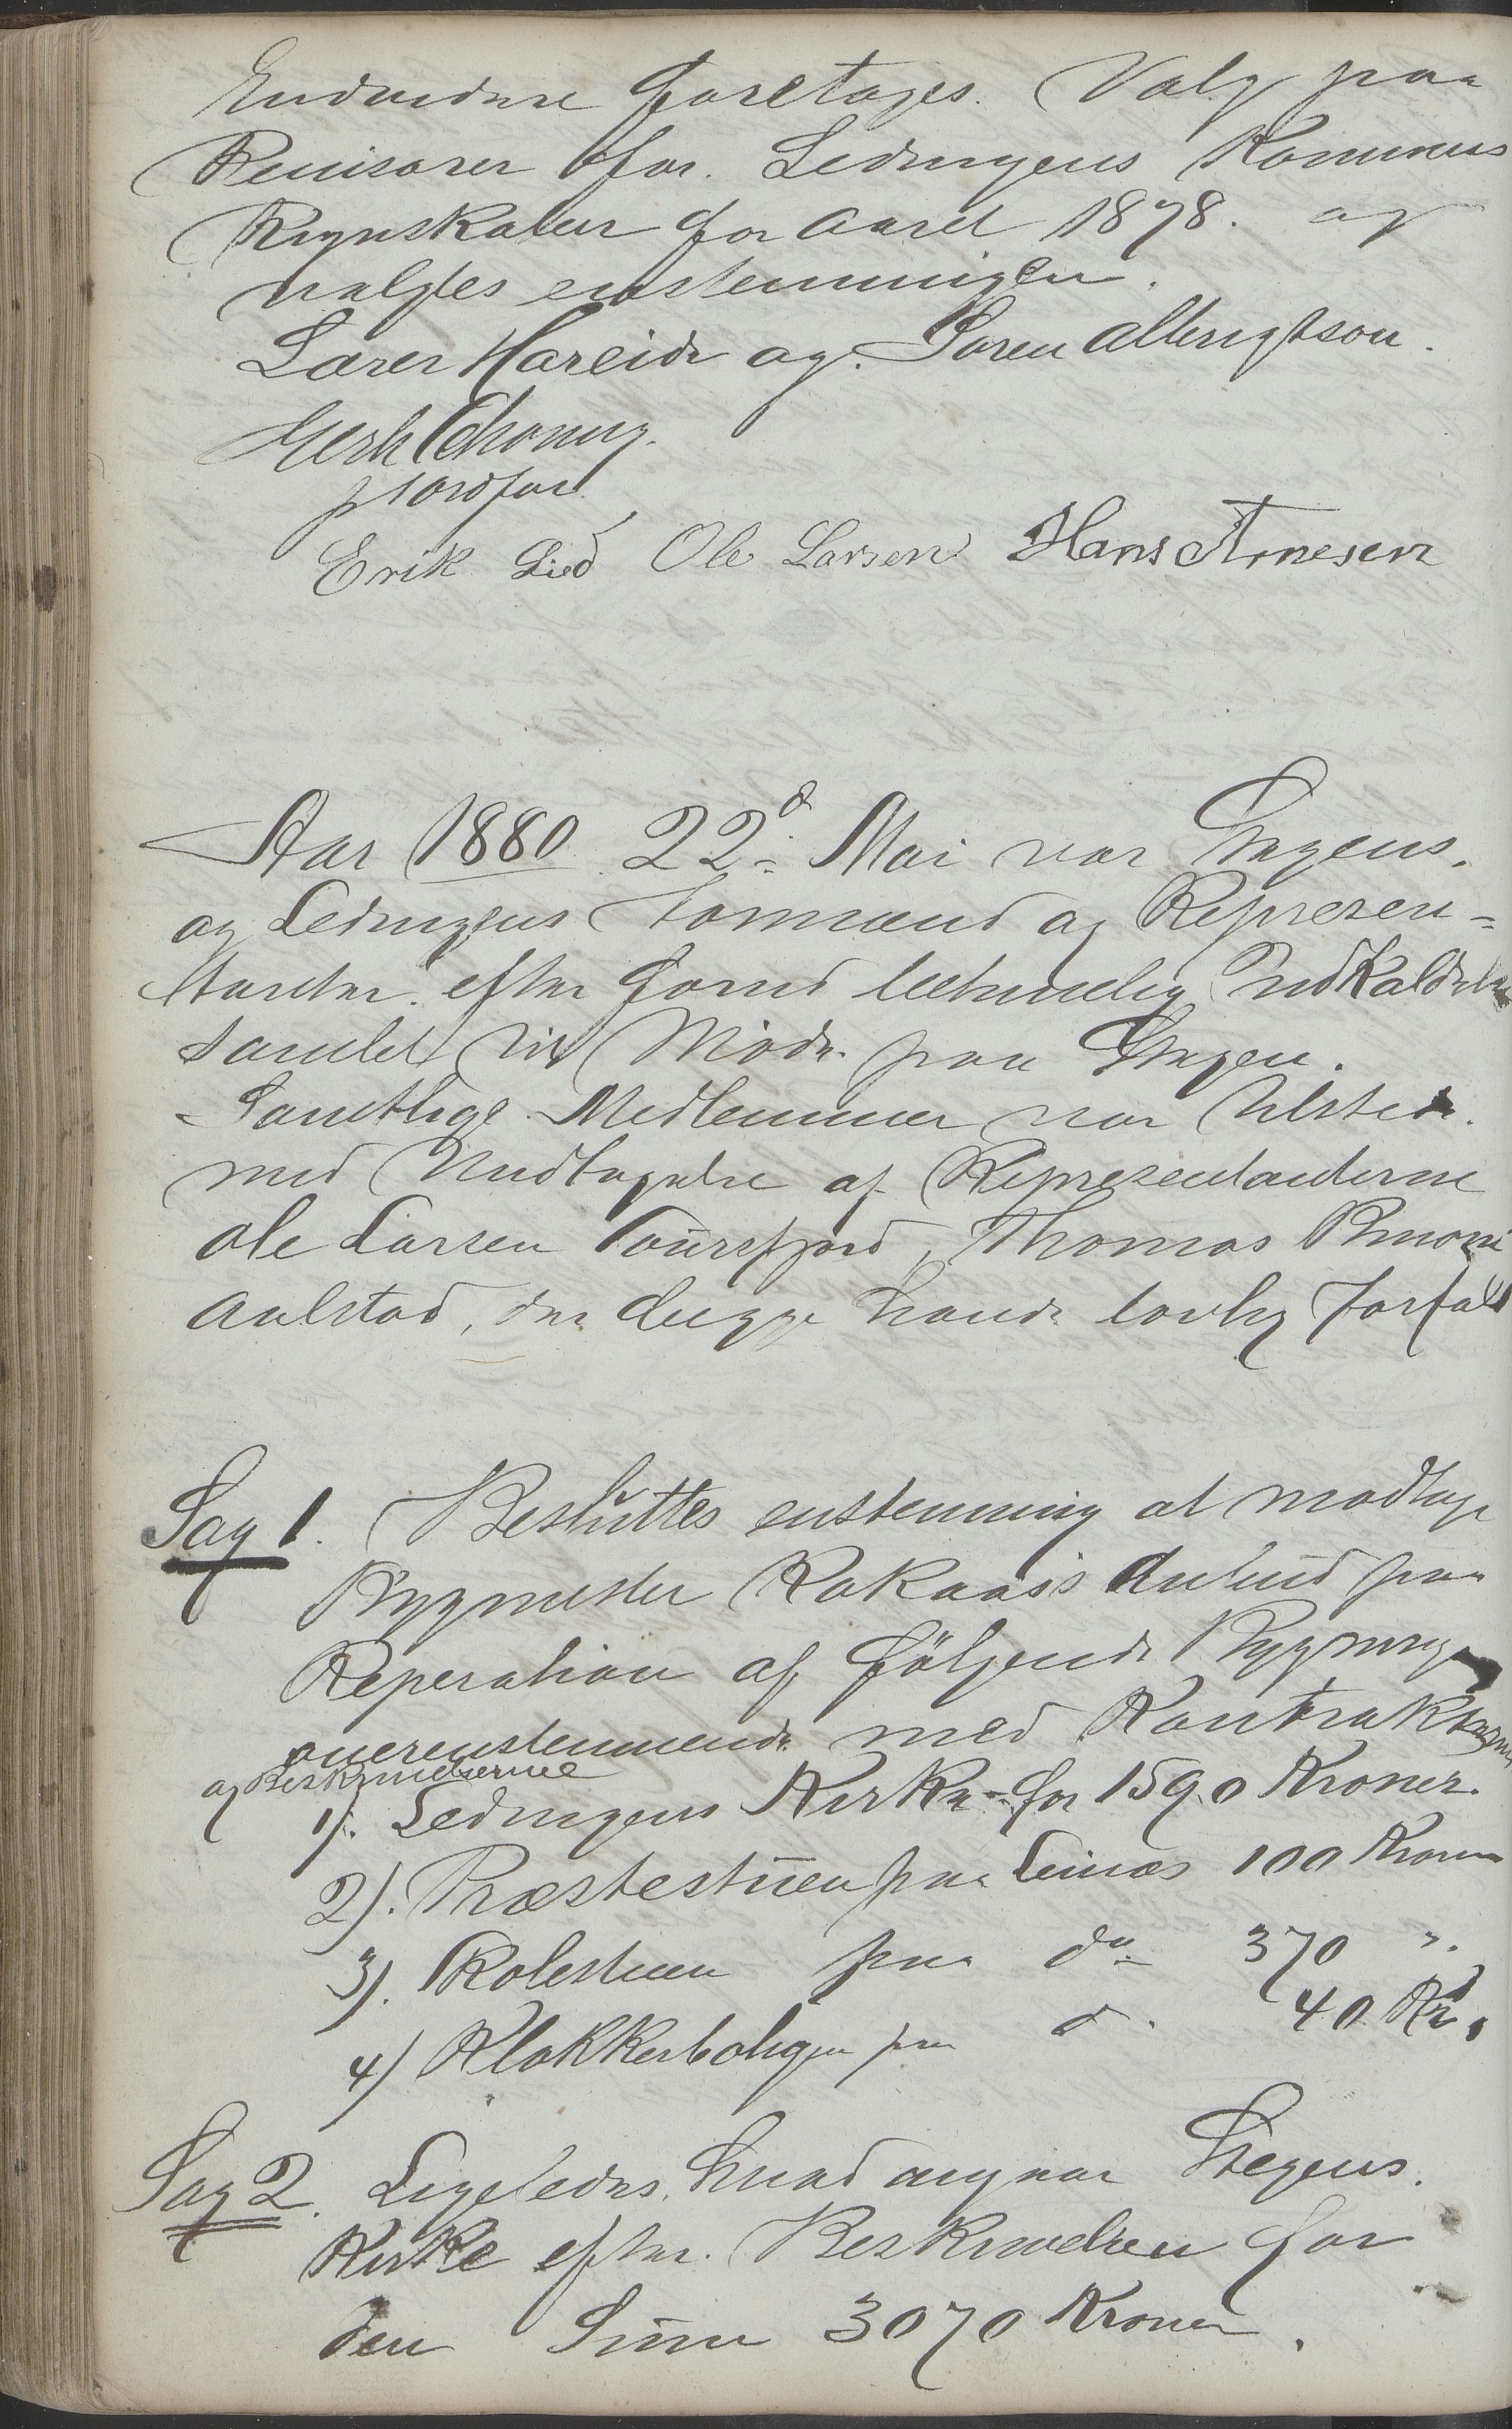 Endvidere foretages. Valg paa
Revisorer for. Ledingens Kommues
Regnskaber for aaret 1878. og
valgtes enstemmigen.
Lærer Hareide og. Søren albrigtsen.
Gerh Schøning.
p Ordfør.
Erik Lied Ole Larsen Hans Arnesen
Aar 1880 22d Mai var Stegens.
og Ledingens Formænd og Represen-
tanter. efter forud behørig Indkaldelse
samlet til Møde paa Stegen.
Samtlige Medlemmer var tilstede.
med Undtagelse af Representanterne
Ole Larsen , Thomas
Aalstad, der begge havde lovlig forfald
Sag 1. Besluttes enstemmig at modtage
Bygmester Kokaas's Anbud paa
Reperation af følgende Bygninger
overenstemmende med Kontrakterne
og Beskrivelserne
1). Ledingens Kirke for 1590 Kroner.
2). Præstestuen paa Leinæs 100 Kroner
3). Skolestuen paa do 370 ".
4) Klokkerboligen paa d. 40 Kr.
Sag 2. Ligeledes. hvad angaar Stegens.
Kirke efter. Beskrivelsen for
den Sum 3070 Kroner.